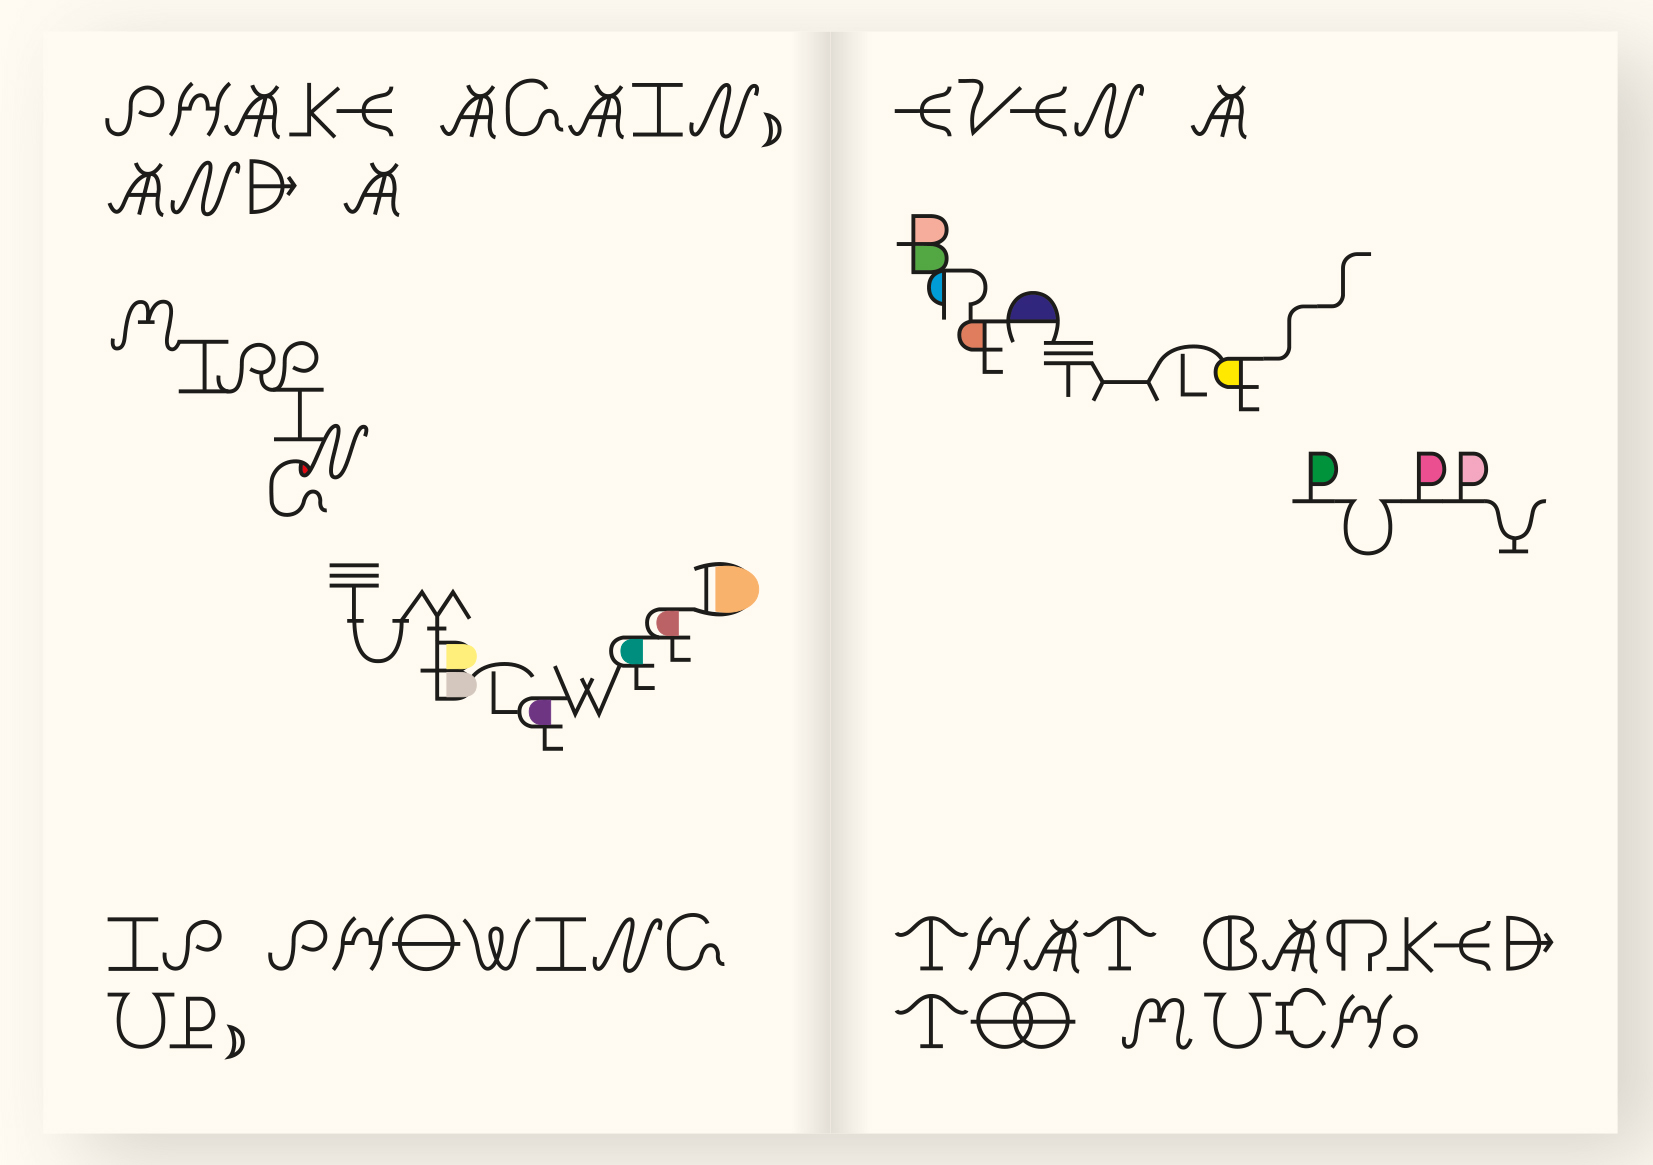 SHAKE AGAIN,
AND A
MISSING
TUMBLEWEED
IS SHOWING
UP,
EVEN A
BREATHLESS
PUPPY
THAT BARKED
TOO MUCH.